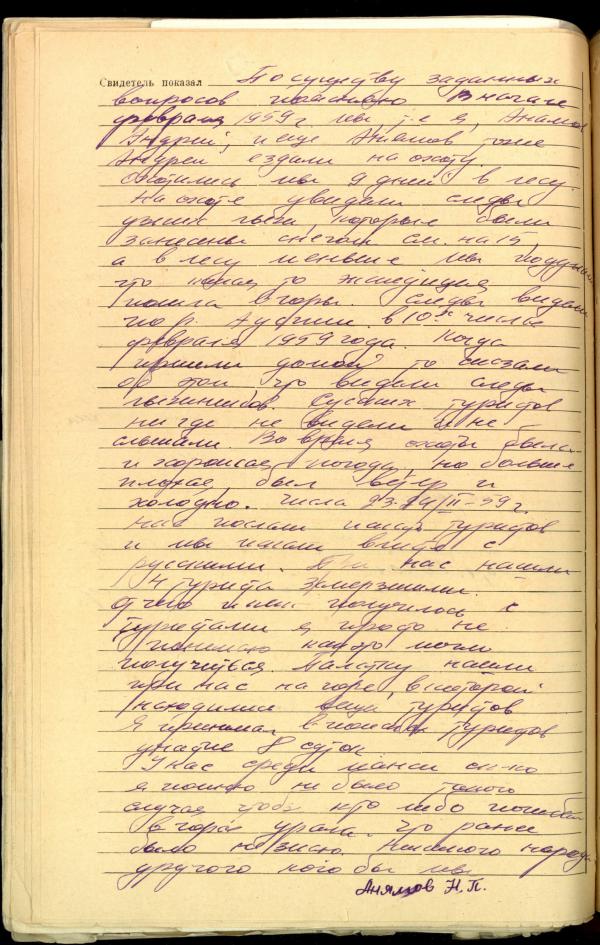 Свидетель показал По существу заданных
вопросов поясняю В начале
февраля 1959 г мы, т-е я, Анямов
Андрей, и еще Анямов тоже
Андрей ездили на охоту.
Охотились мы 9 дней в лесу.
На охоте увидали следы
узких лыж, которые были
занесены снегом см. на 15,
а в лесу меньше мы подумали
что какая то экспедиция
пошла в горы. Следы видали
по р. Ауспии в 10х числах
февраля 1959 года. Когда
пришли домой, то сказали
об этом, что видали следы
лыжников. Самих туристов
ни где не видели и не
слышали. Во время охоты была
и хорошая погода, но больше
плохая, был ветер и
холодно. Числа 23-24/II-59 г.
нас послали искать туристов
и мы искали вместе с
русскими. При нас нашли
4 туриста замерзшими.
От чего и как получилось с
туристами я просто не
понимаю как это могло
получиться. Палатку нашли
при нас на горе, в которой
находились вещи туристов
Я принимал в поисках туристов
участие 8 суток
У нас среди манси ск-ко
я помню не было такого
случая чтобы кто либо погибал
в горах урала. Что ранее
было не знаю. Никакого народа
другого кого бы мы
Анямов Н. П.